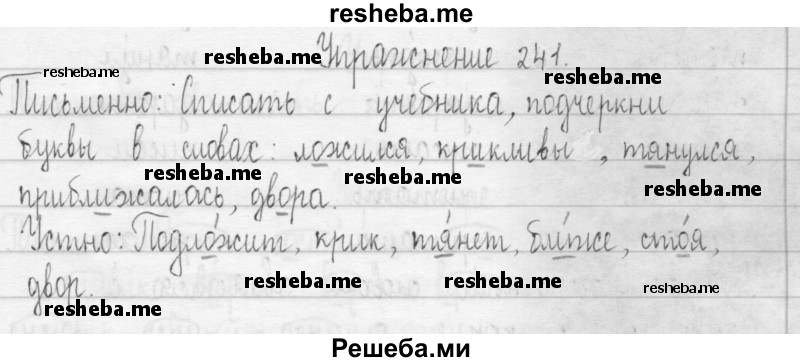 resheba.me
Упражнение 241.
resheba.me
resheba.me
resheba.me
Письменно: Списать с учебника, подчеркни
resheba.me
буквы в словах: ложился, крикливы, тянулся,
resheba.me
resheba.me
resheba.me
приближалась, двора.
Устно: Подло́жит, крик, тя́нет, бли́же, сто́я,
resheba.me
resheba.me
resheba.me
двор.
resheba.me
Решеба.ми